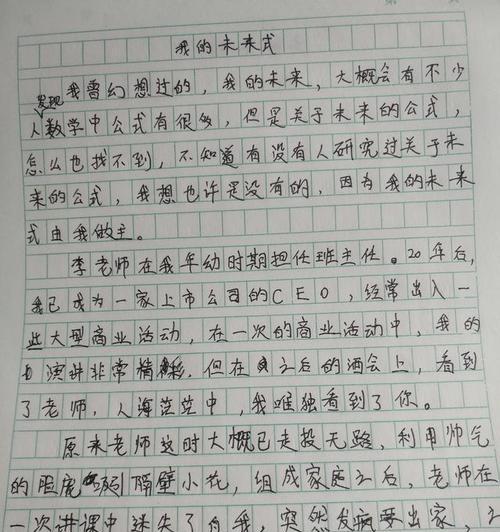 我的未来式
我曾幻想过的，我的未来，大概会有不少
发现
人数学中公式有很多，但是关于未来的公式，
怎么也找不到，不知道有没有人研究过关于未
来的公式，我想也许是没有的，因为我的未来
式由我做主。
李老师在我年幼时期担任班主任。20年后，
我已成为一家上市公司的CEO，经常出入一
些大型商业活动，在一次的商业活动中，我的
演讲非常精彩，但在之后的酒会上，看到
了老师，人海茫茫中，我唯独看到了你。
原来老师这时大概已走投无路，利用帅气
的脸庞 隔壁小花，组成家庭之后，老师在
一次讲课中迷失了自我，突然发疯要出家，